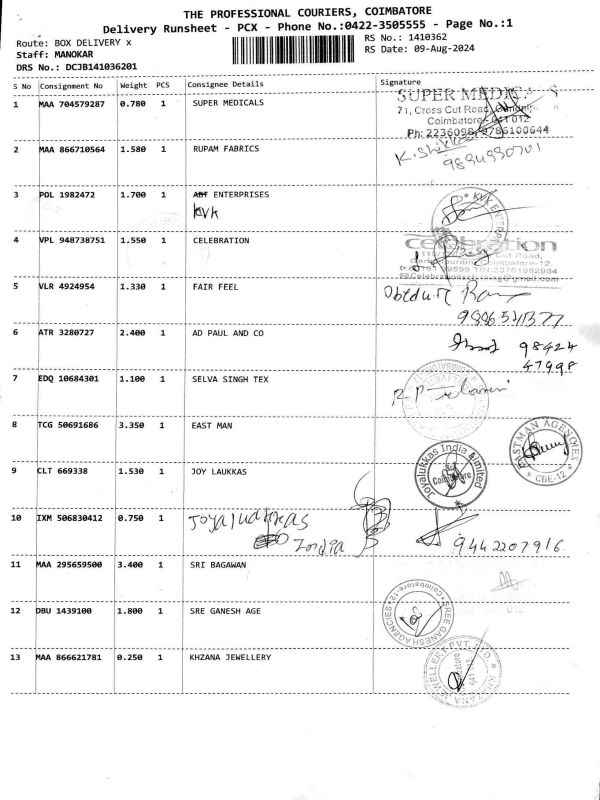 THE PROFESSIONAL COURIERS, COIMBATORE
Delivery Runsheet - PCX - Phone No.:0422-3505555 - Page No.:1
Route: BOX DELIVERY x RS No.: 1410362
Staff: MANOKAR RS Date: 09-Aug-2024
DRS No.: DCJB141036201
S No Consignment No Weight PCS Consignee Details Signature
1 MAA 704579287 0.780 1 SUPER MEDICALS
SUPER MEDICALS
71, Cross Cut Road,
Coimbatore - 641 012
Ph: 2236098, 9786100644
2 MAA 866710564 1.580 1 RUPAM FABRICS
9894930701
3 POL 1982472 1.700 1 ABT ENTERPRISES
KVK
4 VPL 948738751 1.550 1 CELEBRATION
celebration
Cut Road,
Coimbatore-12.
5 VLR 4924954 1.330 1 FAIR FEEL
6 ATR 3280727 2.400 1 AD PAUL AND CO
98424
47998
7 EDQ 10684301 1.100 1 SELVA SINGH TEX
8 TCG 50691686 3.350 1 EAST MAN
EASTMAN AGENCIES
* CBE-12 *
9 CLT 669338 1.530 1 JOY LAUKKAS
Joyalukkas India Limited
Coimbatore
10 IXM 506830412 0.750 1 Joyalukkas
India
9442207916
11 MAA 295659500 3.400 1 SRI BAGAWAN
12 DBU 1439100 1.800 1 SRE GANESH AGE
SREE GANESH AGENCIES
Coimbatore-12
13 MAA 866621781 0.250 1 KHZANA JEWELLERY